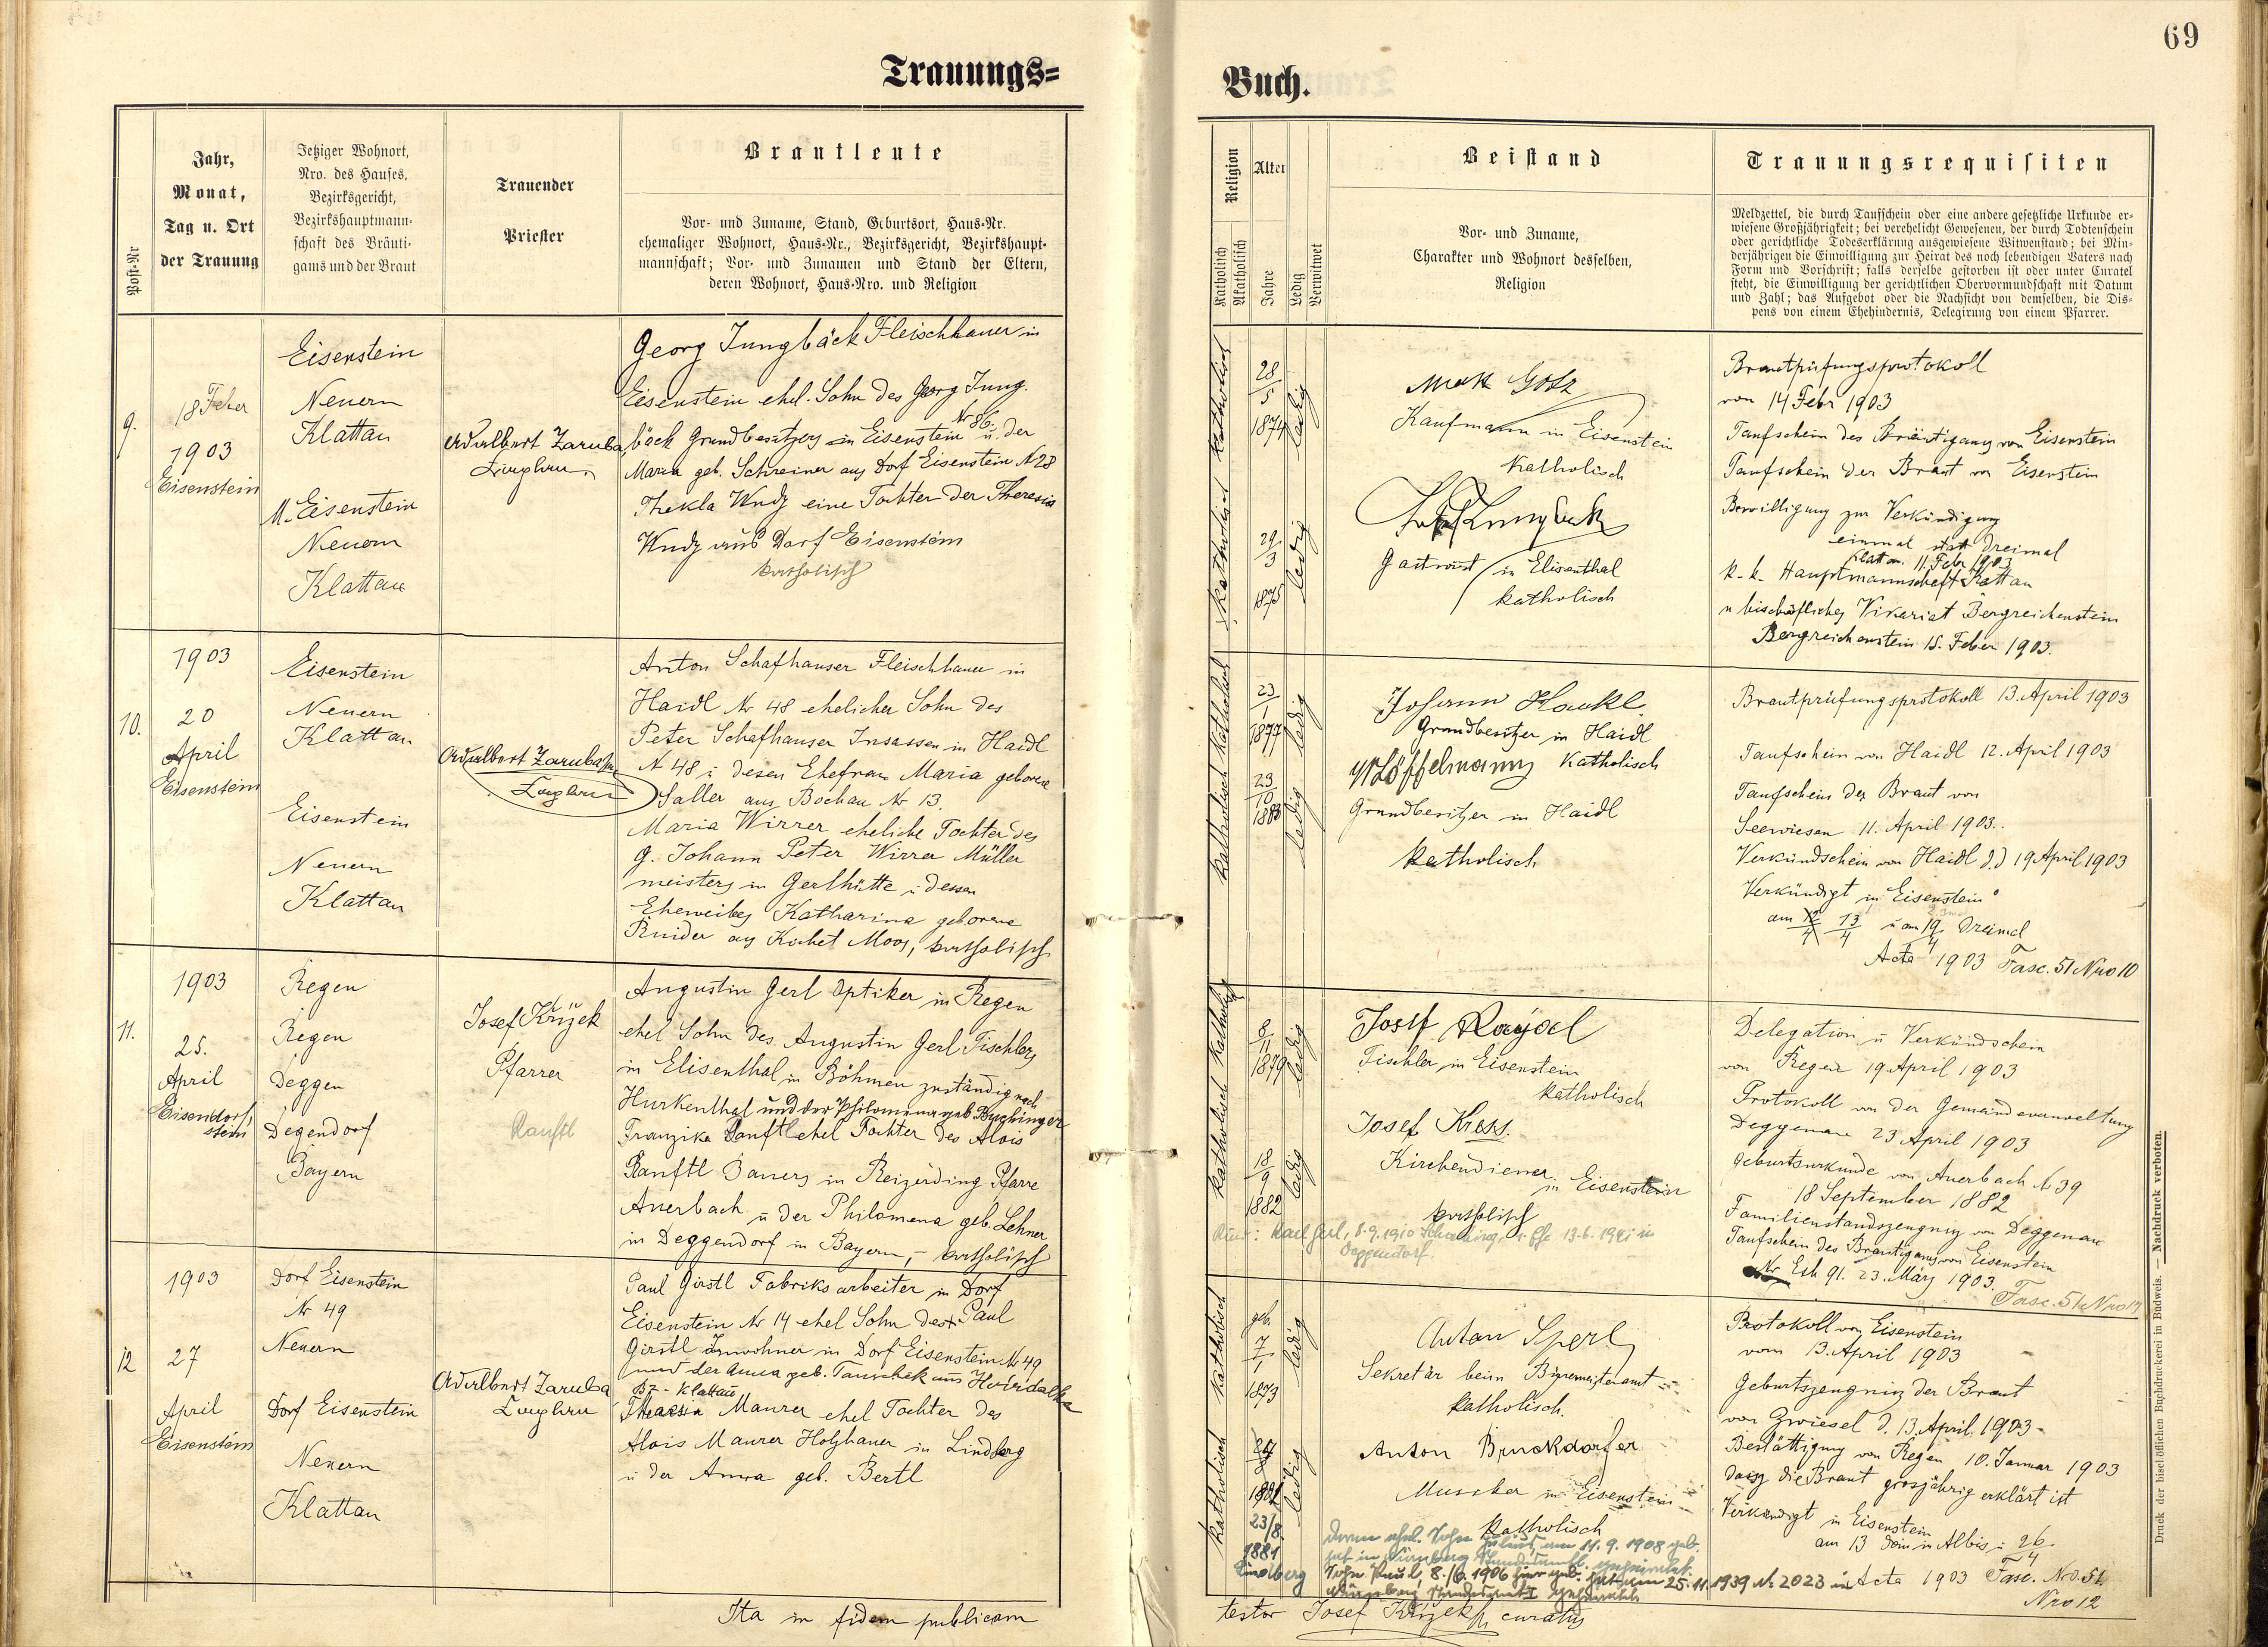 69
Trauungs=
Buch.
Post-Nr
Jahr,
Monat,
Tag u. Ort
der Trauung
Jetziger Wohnort,
Nro. des Hauses,
Bezirksgericht,
Bezirkshauptmann-
schaft des Bräuti-
gams und der Braut
Trauender
Priester
Brautleute
Vor- und Zuname, Stand, Geburtsort, Haus-Nr.
ehemaliger Wohnort, Haus-Nr., Bezirksgericht, Bezirkshaupt-
mannschaft; Vor- und Zunamen und Stand der Eltern,
deren Wohnort, Haus-Nro. und Religion
Religion
Katholisch
Akatholisch
Alter
Jahre
Ledig
Verwitwet
Beistand
Vor- und Zuname,
Charakter und Wohnort desselben,
Religion
Trauungsrequisiten
Meldzettel, die durch Taufschein oder eine andere gesetzliche Urkunde er-
wiesene Großjährigkeit; bei verehelicht Gewesenen, der durch Todtenschein
oder gerichtliche Todeserklärung ausgewiesene Witwenstand; bei Min-
derjährigen die Einwilligung zur Heirat des noch lebendigen Vaters nach
Form und Vorschrift; falls derselbe gestorben ist oder unter Curatel
steht, die Einwilligung der gerichtlichen Obervormundschaft mit Datum
und Zahl; das Aufgebot oder die Nachsicht von demselben, die Dis-
pens von einem Ehehindernis, Delegirung von einem Pfarrer.
9.
18 Feber
1903
Eisenstein
Eisenstein
Neuern
Klattau
M. Eisenstein
Neuern
Klattau
Adalbert Zaruba
Georg Jungbäck Fleischhauer in
Eisenstein ehel. Sohn des Georg Jung.
bäck Grundbesitzers in Eisenstein Nr 86. u. der
Maria geb. Schreiner aus Dorf Eisenstein N 28
Thekla Wudy eine Tochter der Theresia
Wudy aus Dorf Eisenstein
katholisch
katholisch
28
5
1874
ledig
katholisch
29
3
1875
ledig
Max Götz
Kaufmann in Eisenstein
Katholisch
Gastwirt in Elisenthal
katholisch
Brautprüfungsprotokoll
von 14 Febr 1903
Taufschein des Bräutigams von Eisenstein
Taufschein der Braut von Eisenstein
Bewilligung zur Verkündigung
einmal statt dreimal
Klattau 11. Febr 1903
k. k. Hauptmannschaft Klattau
u bischöfliches Vikariat Bergreichenstein
Bergreichenstein 15. Feber 1903.
10.
1903
20
April
Eisenstein
Eisenstein
Neuern
Klattau
Eisenstein
Neuern
Klattau
Adalbert Zaruba
Anton Schafhauser Fleischhauer in
Haidl Nr 48 ehelicher Sohn des
Peter Schafhauser Insassen in Haidl
N 48 u desen Ehefrau Maria geborene
Saller aus Bochau Nr 13.
Maria Wirrer eheliche Tochter des
g. Johann Peter Wirrer Müller
meisters in Gerlhütte u dessen
Eheweibes Katharina geborene
aus Kochet Moos, katholisch
katholisch
23
1
1877
ledig
katholisch
23
10
1883
ledig
Johann Hackl
Grundbesitzer in Haidl
Löffelmann Katholisch
Grundbesitzer in Haidl
katholisch
Brautprüfungsprotokoll 13. April 1903
Taufschein von Haidl 12. April 1903
Taufschein der Braut von
Seewiesen 11. April 1903.
Verkündschein von Haidl d.d 19 April 1903
Verkündigt in Eisenstein
am 12/4 13/4 u am 19/4 dreimal
Acta 1903 Fasc. 51 Nro 10
11.
1903
25.
April
Eisendorf
stein
Regen
Regen
Deggen
Degendorf
Bayern
Josef Křížek
Pfarrer
Ranftl
Augustin Gerl Optiker in Regen
ehel Sohn des Augustin Gerl Tischlers
in Elisenthal in Böhmen zuständig nach
Hurkenthal und der Philomena geb. Buchinger
Franzika Ranftl ehel Tochter des Alois
Ranftl Bauers in Reizerding Pfarre
Auerbach u der Philomena geb. Lehner
in Deggendorf in Bayern, - katholisch
katholisch
8
11
1879
ledig
katholisch
18
9
1882
ledig
Josef Raydel
Tischler in Eisenstein
katholisch
Josef Kress.
Kirchendiener
in Eisenstein
katholisch
Kind: Karl Gerl, 8.9.1910 13.6.1941 in
Deggendorf.
Delegation u Verkündschein
von Regen 19 April 1903
Protokoll von der Gemeindeverwaltung
Deggenau 23 April 1903
Geburtsurkunde von Auerbach N 39
18 September 1882
Familienstandszeugnis von Deggenau
Taufschein des Bräutigams von Eisenstein
Nr Exh 91. 23. März 1903.
Fasc. 51 Nro 11
12
1903
27
April
Eisenstein
Dorf Eisenstein
Nr 49
Neuern
Dorf Eisenstein
Neuern
Klattau
Adalbert Zaruba
Paul Girstl Fabriksarbeiter in Dorf
Eisenstein Nr 14 ehel Sohn des + Paul
Girstl Inwohner in Dorf Eisenstein Nr 49
und der Anna geb. Tauschek aus
Bz - Klattau
Theresia Maurer ehel Tochter des
Alois Maurer Holzhauer in Lindberg
u der Anna geb. Bertl
katholisch
geb.
7
1
1873
ledig
katholisch
ledig
23/8.
1881
Lindberg
Anton Sperl
Sekretär beim Bürgermeisteramt
katholisch.
Anton Bruckdorfer
Musiker in Eisenstein
Katholisch
deren ehel. Sohn Julius, am 11.9.1908 geb.
hat in Nürnberg
Sohn Paul, 8./6. 1906 hier geb. hat am 25.11.1939 N. 2023 in
Nürnberg Standesamt I
Protokoll von Eisenstein
vom 13. April 1903
Geburtszeugnis der Braut
von Zwiesel d. 13. April. 1903 -
Bestättigung von Regen 10. Januar 1903
dass die Braut grosjährig erklärt ist
Verkündigt in Eisenstein
am 13 Dom in Albis u 26/4
Acta 1903 Fasc. Nro. 51
Nro 12
Ita in fidem publicam
testor Josef Křížek curatus
Druck der bischöflichen Buchdruckerei in Budweis. — Nachdruck verboten.